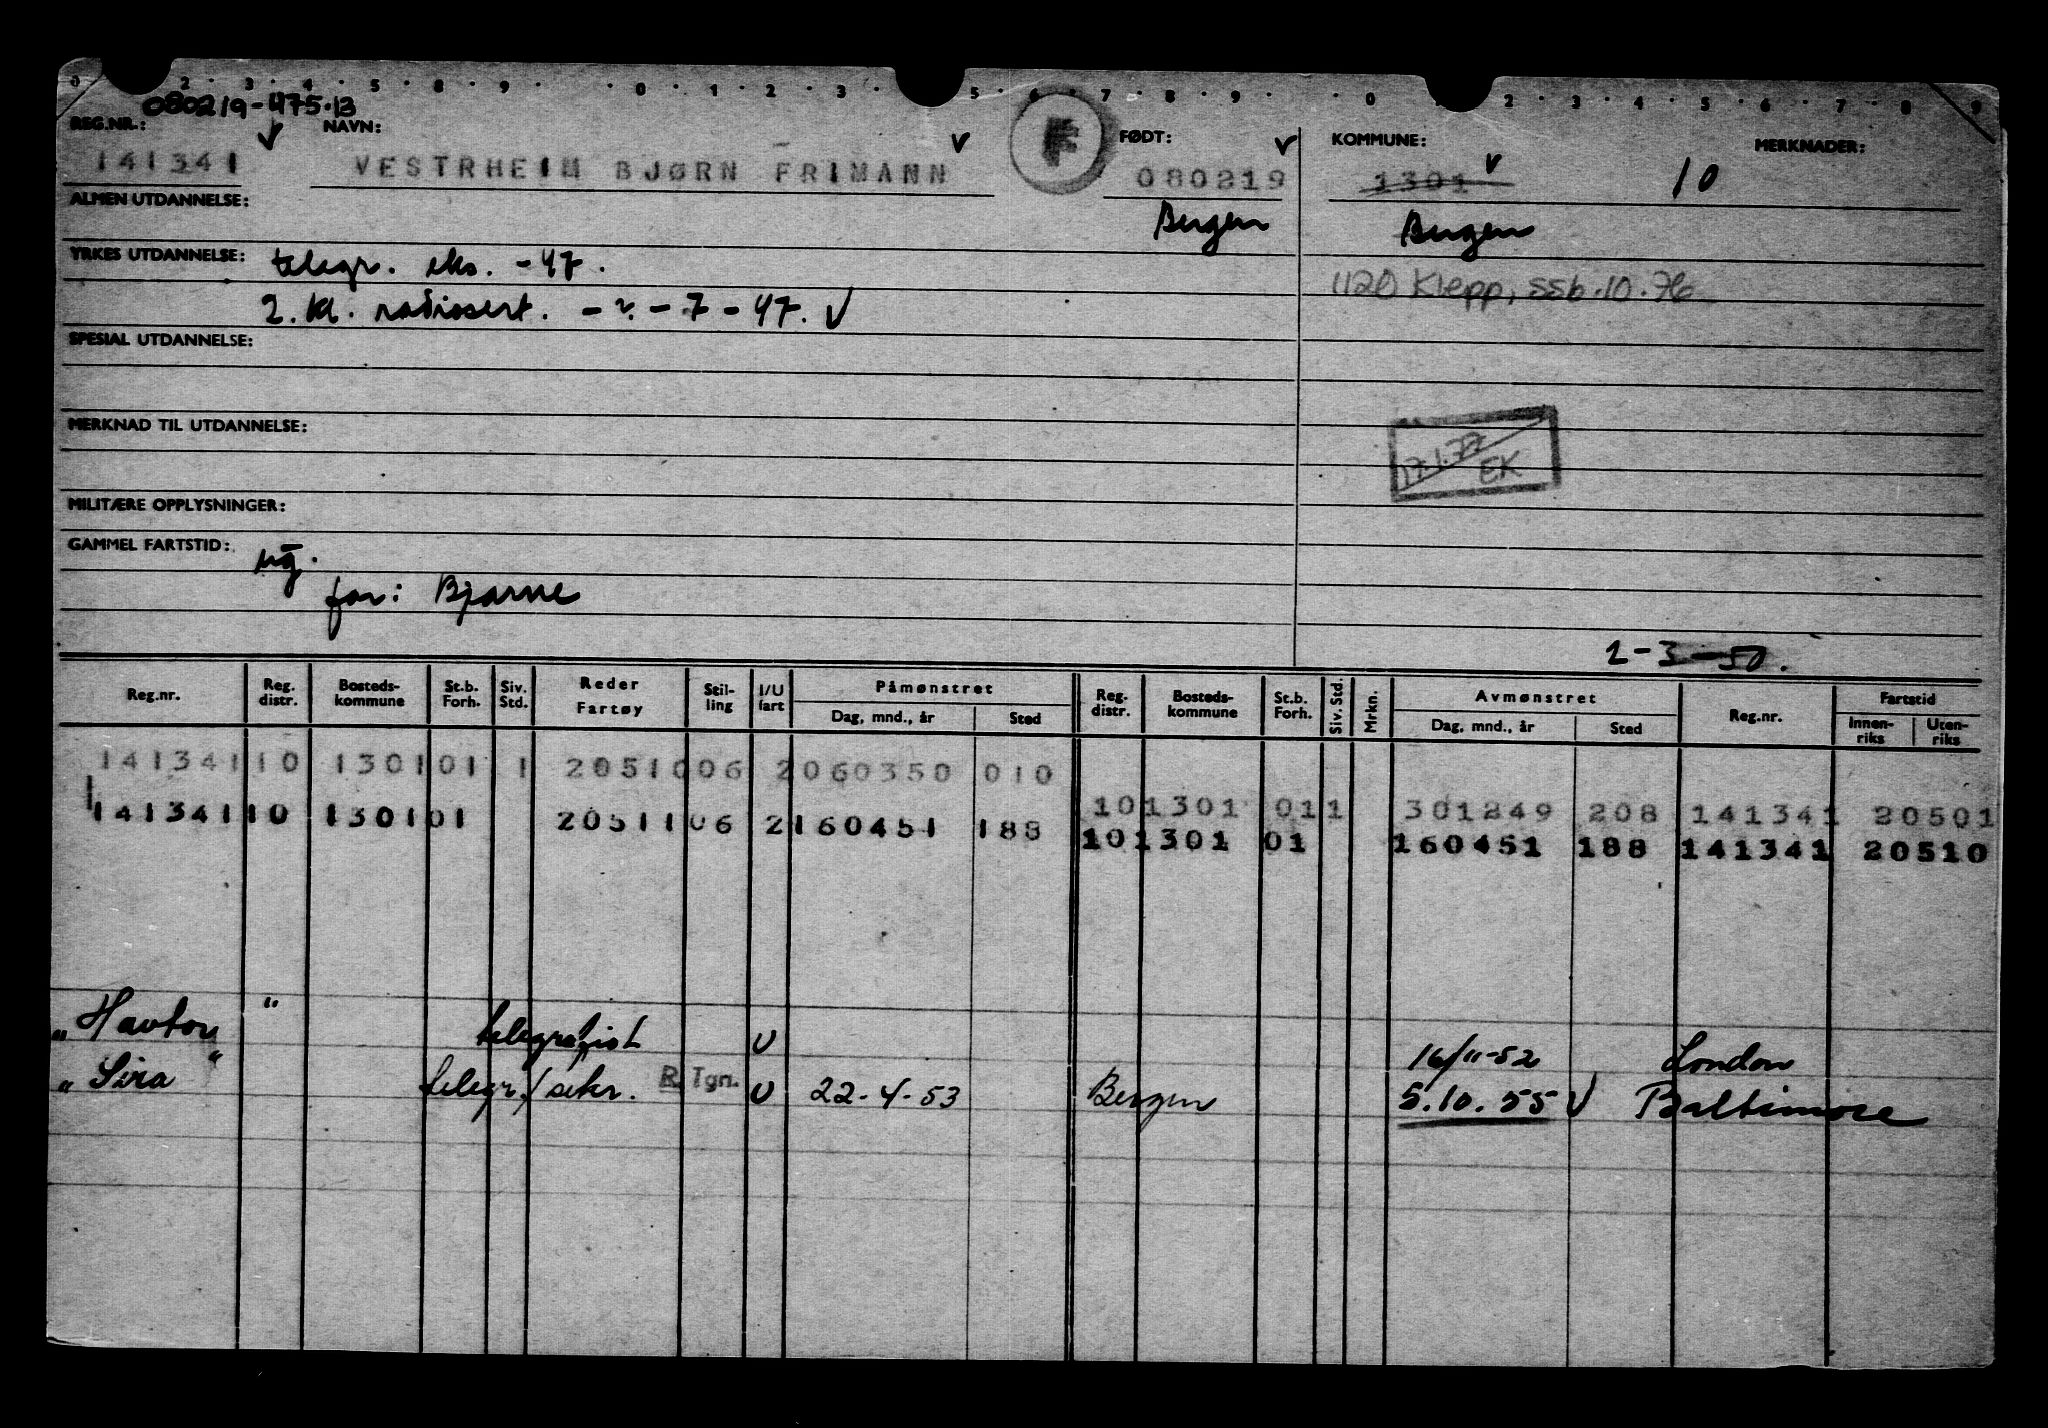 0 2 3 4 5 8 9 0 1 2 3 5 6 7 8 9 0 2 3 4 5 6 7 8 9
080219-475.13
REG.NR.: NAVN: F FØDT: KOMMUNE: MERKNADER:
141341 VESTRHEIM BJØRN FRIMANN 080219 1301 10
ALMEN UTDANNELSE: Bergen Bergen
YRKES UTDANNELSE: telegr. eks. -47.
1120 Klepp, ssb.10.76
2. kl. radiosert. - ?. - 7 - 47. V
SPESIAL UTDANNELSE:
MERKNAD TIL UTDANNELSE:
17.1.77 EK
MILITÆRE OPPLYSNINGER:
GAMMEL FARTSTID:
far: Bjarne
2-3-50.
Reg.nr. Reg. distr. Bosteds-kommune St.b. Forh. Siv. Std. Reder Fartøy Stil-ling I/U fart Påmønstret Dag, mnd., år Sted Reg-distr. Bosteds-kommune St.b. Forh. Siv. Std. Mrkn. Avmønstret Dag, mnd., år Sted Reg.nr. Fartstid Innen-riks Uten-riks
141341 10 1301 01 1 20510 06 2 060350 010
10 1301 01 1 301249 208 141341 20501
141341 10 1301 01 20511 06 2 160451 188
10 1301 01 160451 188 141341 20510
"Havtor" telegrafist U 16/11-52 London
"Sira" telegr./sekr. R.Tgn. U 22-4-53 Bergen 5.10.55 V Baltimore